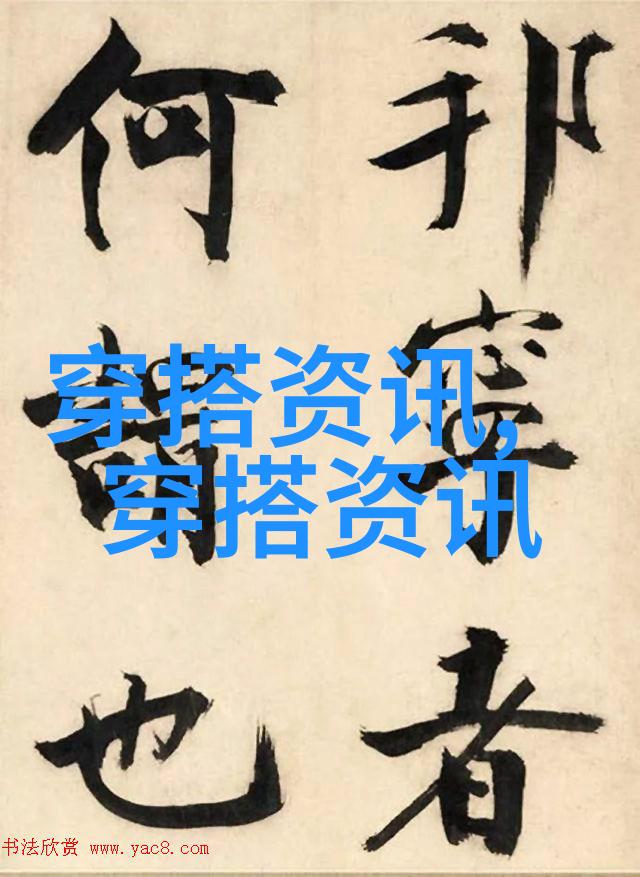 邦寧者
何謂也
穿搭资讯,
穿搭资讯
书法欣赏 www.yac8.com